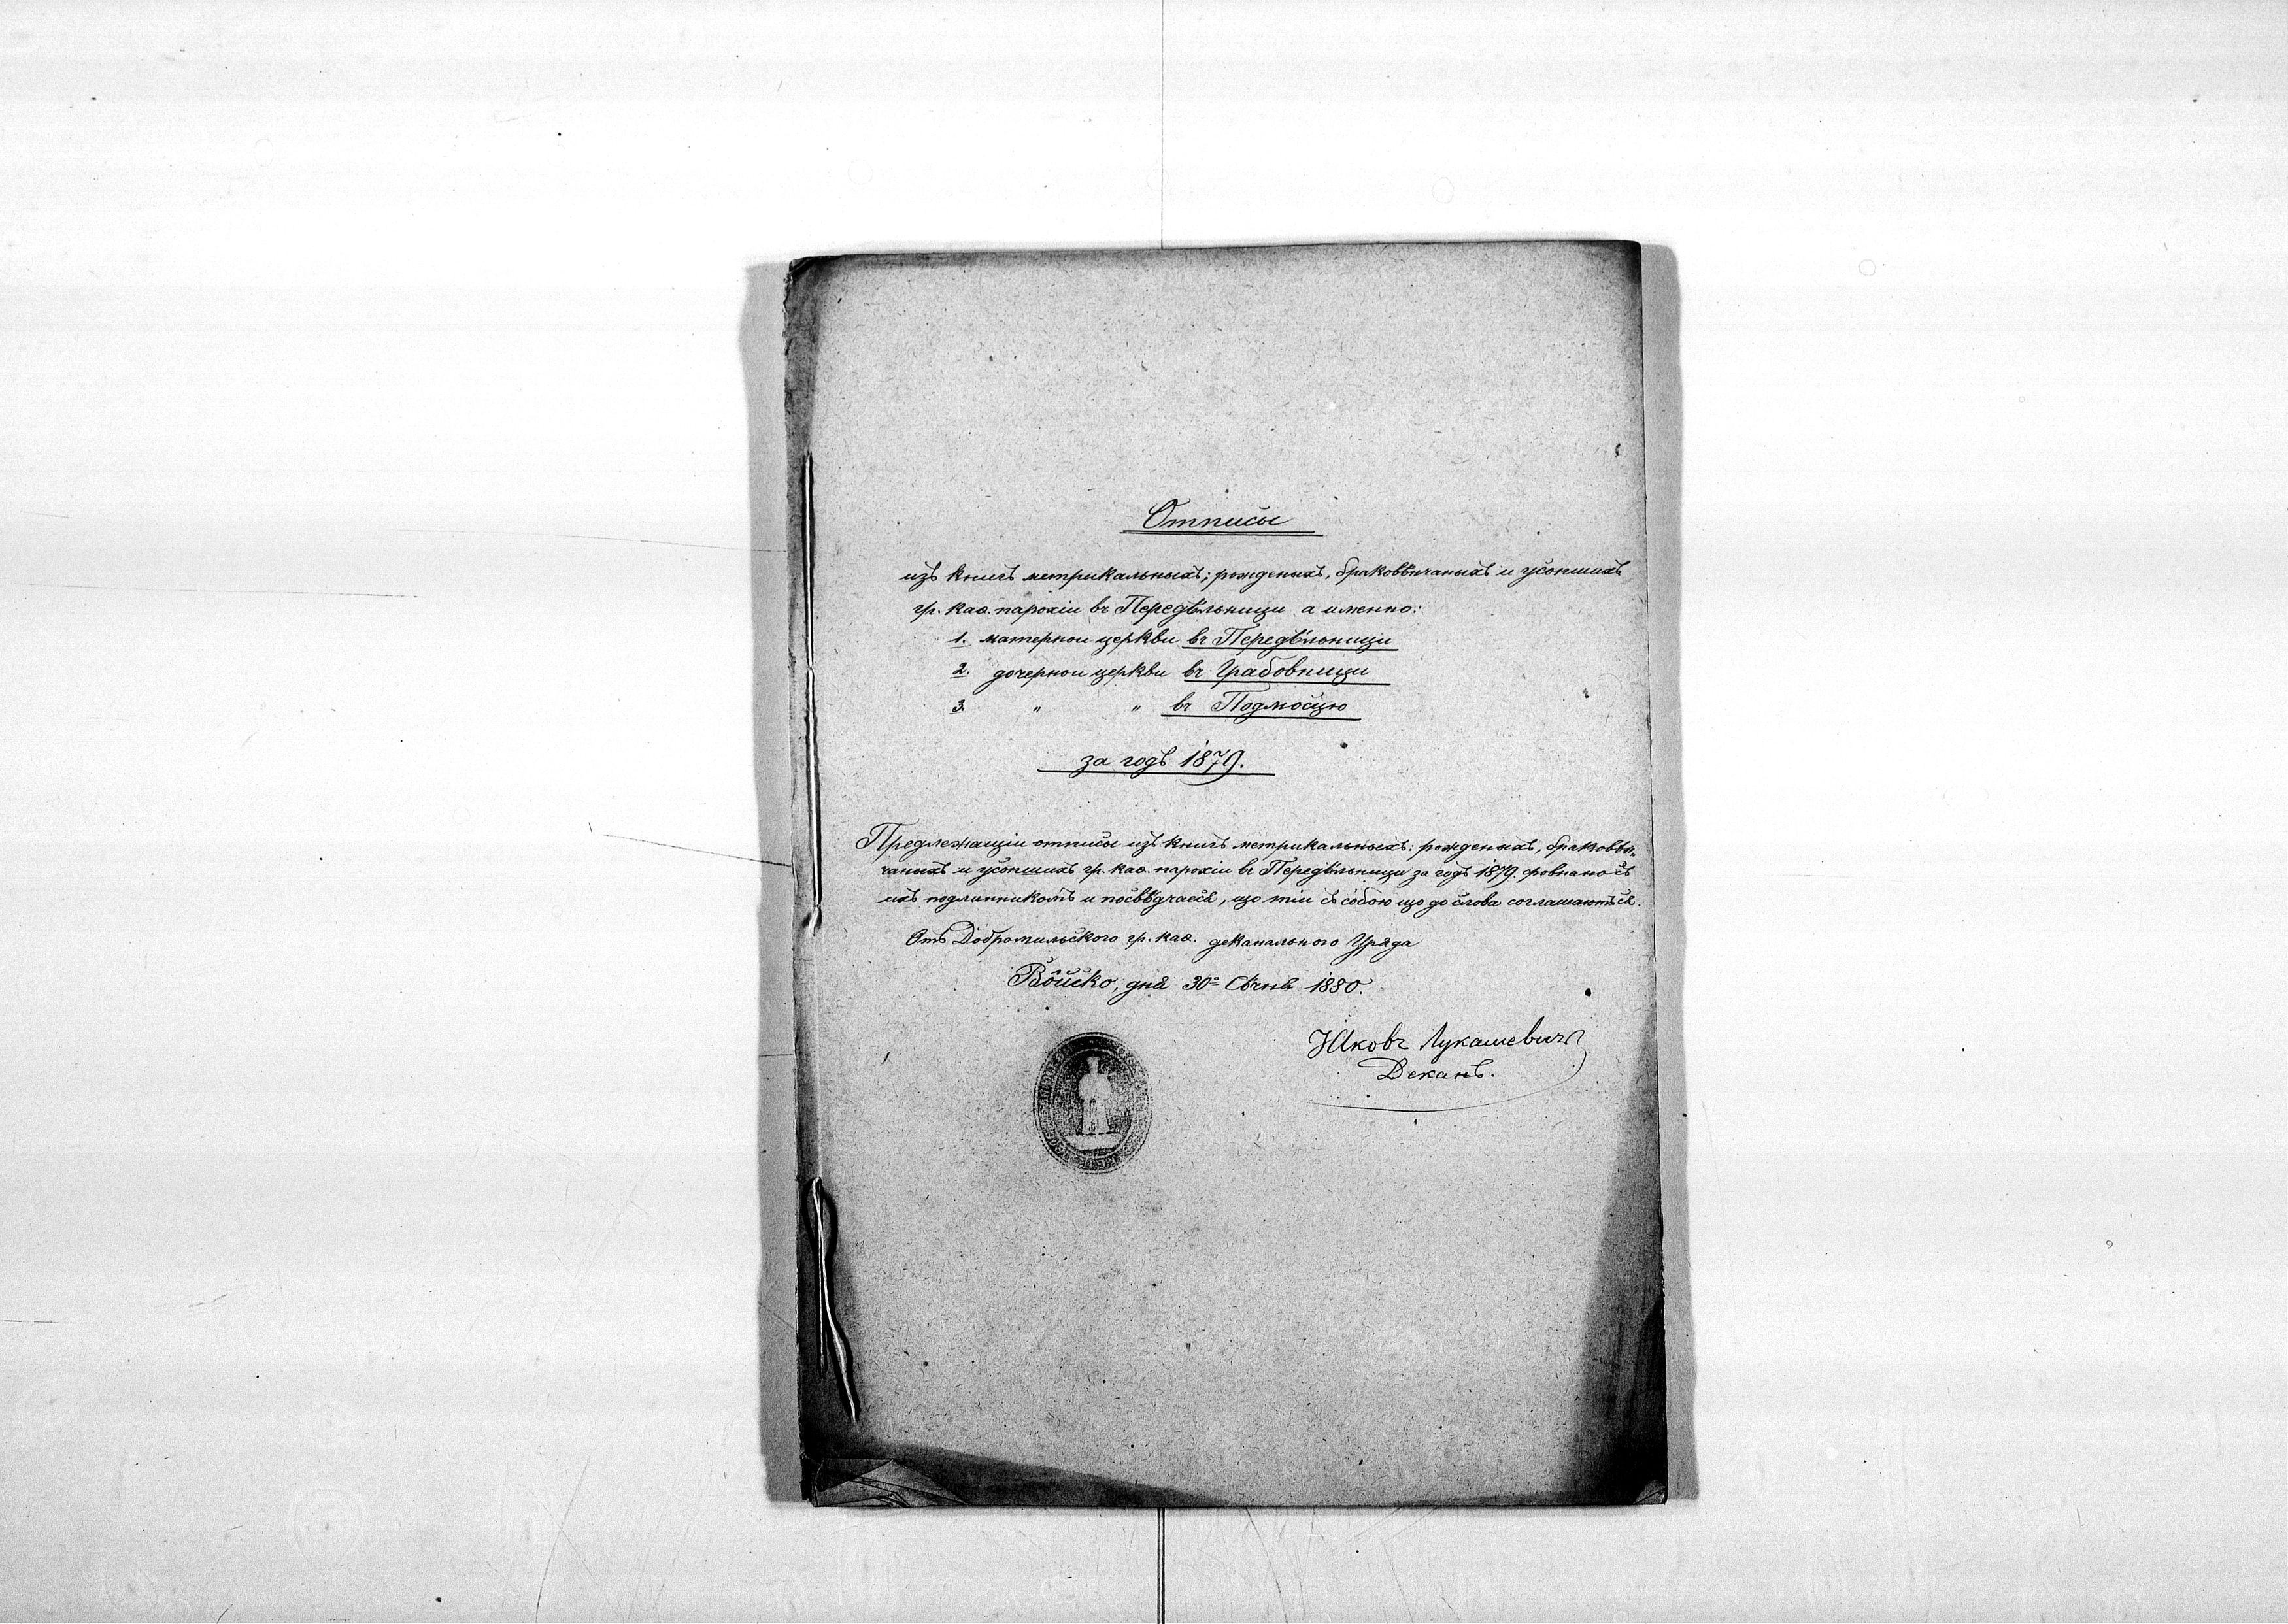 Отписы
изъ книгъ метрикальныхъ; рожденыхъ, браковѣнчаныхъ и усопшихъ
гр. каѳ. парохіи въ Передѣльници а именно:
1. матернои церкви въ Передѣльници
2. дочернои церкви въ Грабовници
3. " " въ Подмосцю
за годъ 1879.
Предлежащіи отписы изъ книгъ метрикальныхъ: рожденыхъ, браковѣн-
чаныхъ и усопшихъ гр. каѳ. парохіи въ Передѣльници за годъ 1879. ровнано съ
ихъ подлинникомъ и посвѣдчаесѧ, що тіи съ собою що до слова соглашаютъсѧ.
Отъ Добромильского гр. каѳ. деканального Урѧда
Вôйско, днѧ 30º Сѣчнѧ 1880.
Іаковъ Лукашевичъ
Деканъ.